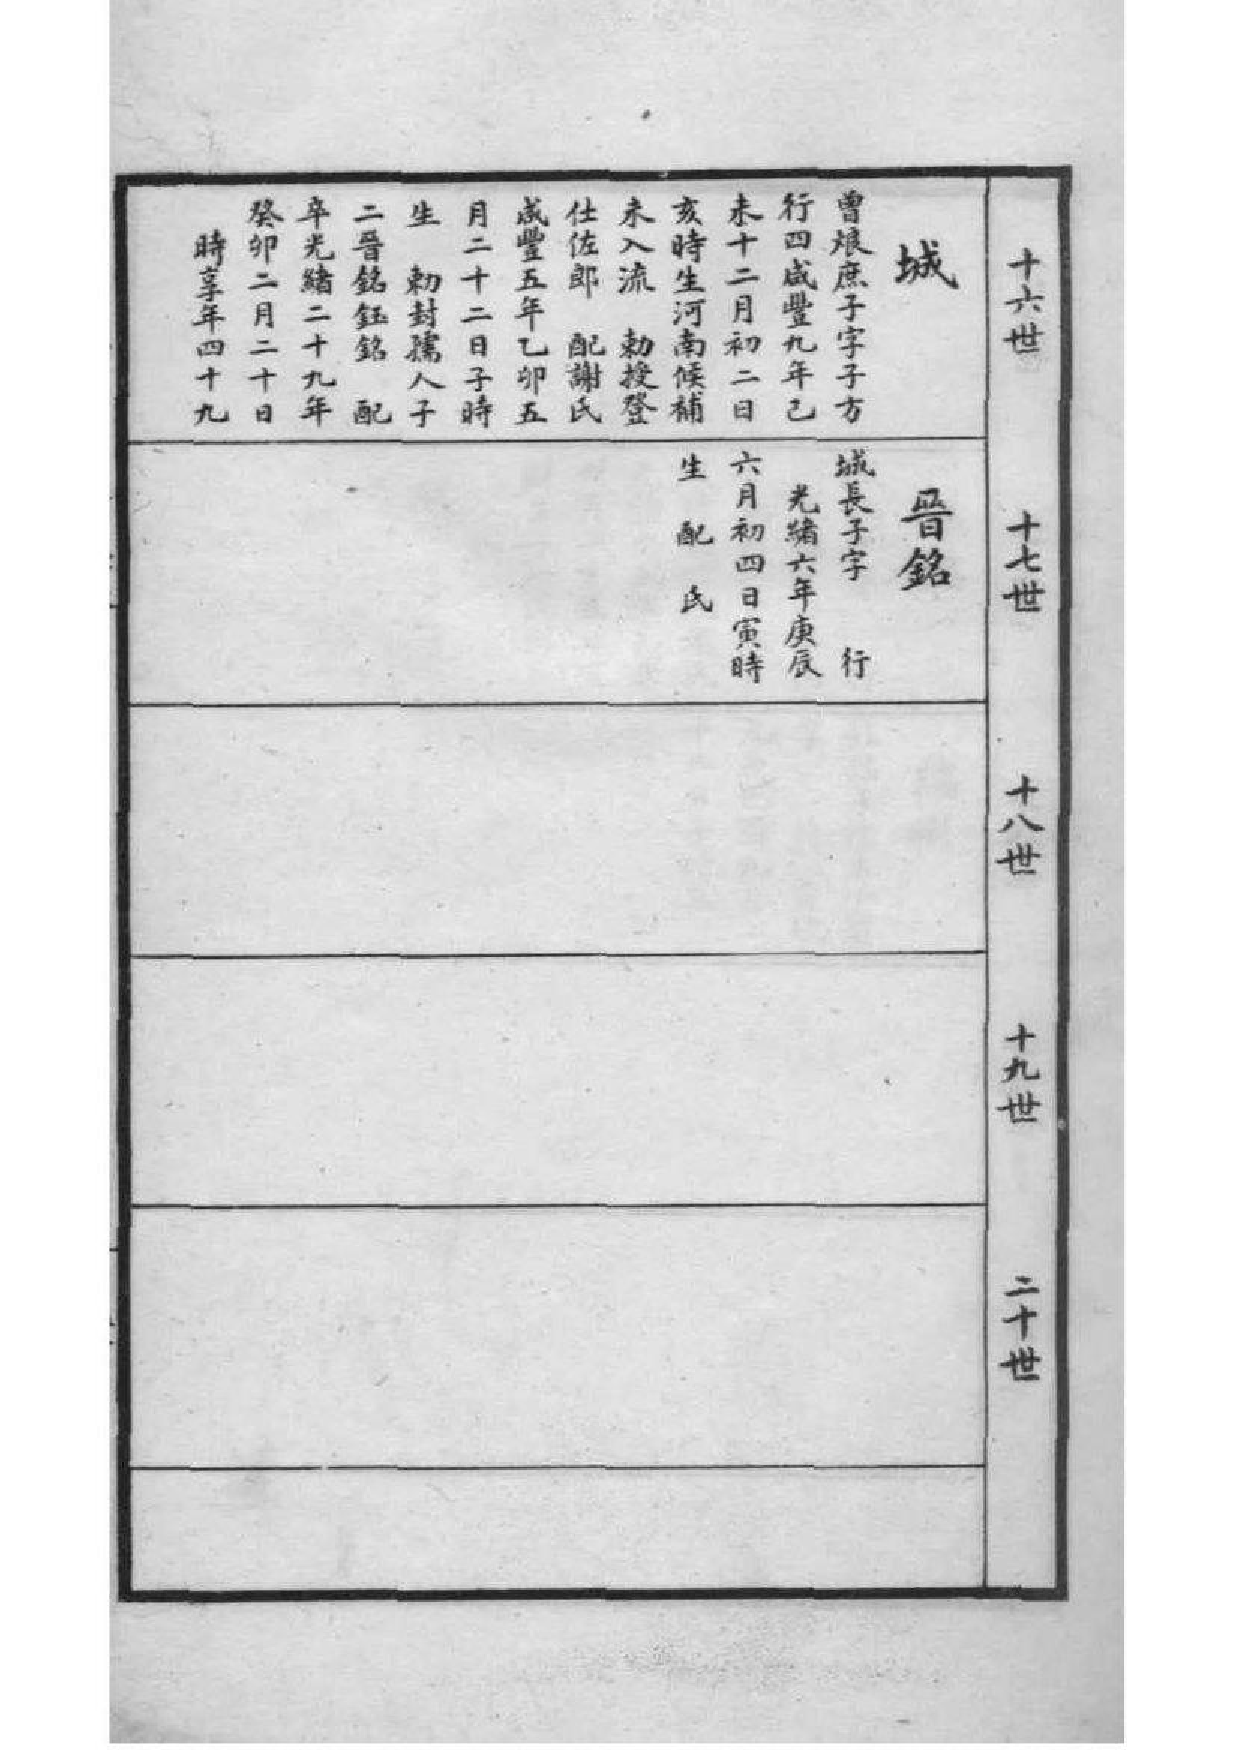 十六世
城
曾烺庶子字子方
行四咸豐九年己
未十二月初二日
亥時生河南候補
未入流　勅授登
仕佐郎　配謝氏
咸豐五年乙卯五
月二十二日子時
生　勅封孺人子
二晉銘鈺銘　配
卒光緒二十九年
癸卯二月二十日
時享年四十九
十七世
晉銘
城長子字　　行
光緒六年庚辰
六月初四日寅時
生　配　氏
十八世
十九世
二十世